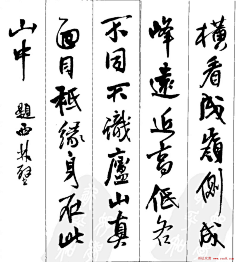 橫看成嶺側成
峰遠近高低各
不同不識廬山真
面目祗緣身在此
山中
題西林壁